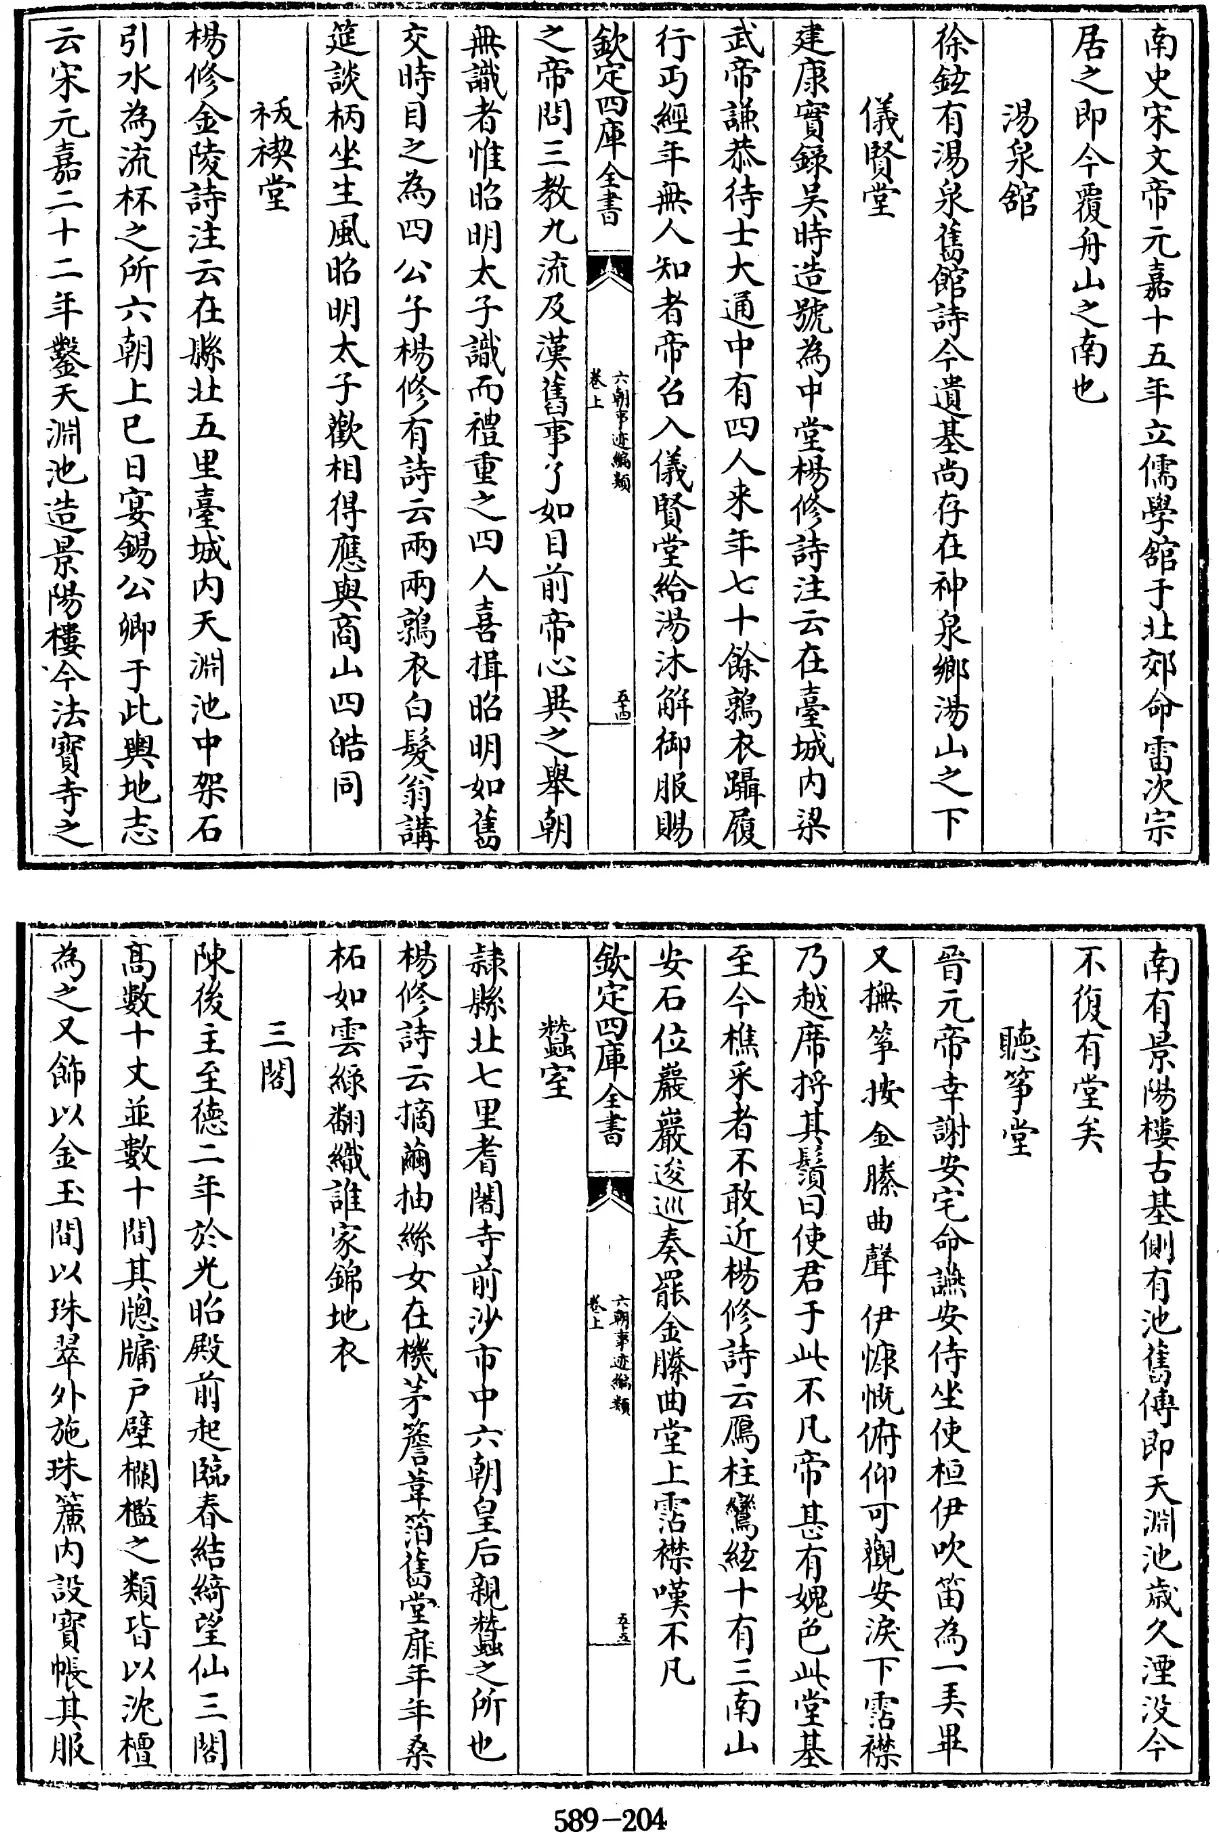 南史宋文帝元嘉十五年立儒學舘于北郊命雷次宗
居之即今覆舟山之南也
湯泉舘
徐鉉有湯泉舊館詩今遺基尚存在神泉鄉湯山之下
儀賢堂
建康實錄吴時造號為中堂楊修詩注云在臺城内梁
武帝謙恭待士大通中有四人来年七十餘鶉衣躡履
行丐經年無人知者帝召入儀賢堂給湯沐解御服賜
欽定四庫全書
六朝事迹編類
卷上
五十四
之帝問三教九流及漢舊事了如目前帝心異之舉朝
無識者惟昭明太子識而禮重之四人喜揖昭明如舊
交時目之為四公子楊修有詩云兩兩鶉衣白髮翁講
筵談柄坐生風昭明太子歡相得應與商山四皓同
袚禊堂
楊修金陵詩注云在縣北五里臺城内天淵池中架石
引水為流杯之所六朝上巳日宴錫公卿于此輿地志
云宋元嘉二十二年鑿天淵池造景陽樓今法寶寺之
南有景陽樓古基側有池舊傳即天淵池歲久湮没今
不復有堂矣
聽箏堂
晉元帝幸謝安宅命讌安侍坐使桓伊吹笛為一弄畢
又撫箏按金縢曲聲伊慷慨俯仰可觀安淚下霑襟
乃越席捋其鬚曰使君于此不凡帝甚有媿色此堂基
至今樵采者不敢近楊修詩云鴈柱鸞絃十有三南山
安石位巖巖逡巡奏罷金縢曲堂上霑襟嘆不凡
欽定四庫全書
六朝事迹編類
卷上
五十五
蠶室
隷縣北七里耆闍寺前沙市中六朝皇后親蠶之所也
楊修詩云摘繭抽絲女在機茅簷葦箔舊堂扉年年桑
柘如雲綠翻織誰家錦地衣
三閣
陳後主至德二年於光昭殿前起臨春結綺望仙三閣
髙數十丈並數十間其牕牖戸壁欄檻之類皆以沈檀
為之又飾以金玉間以珠翠外施珠簾内設寳帳其服
589-204